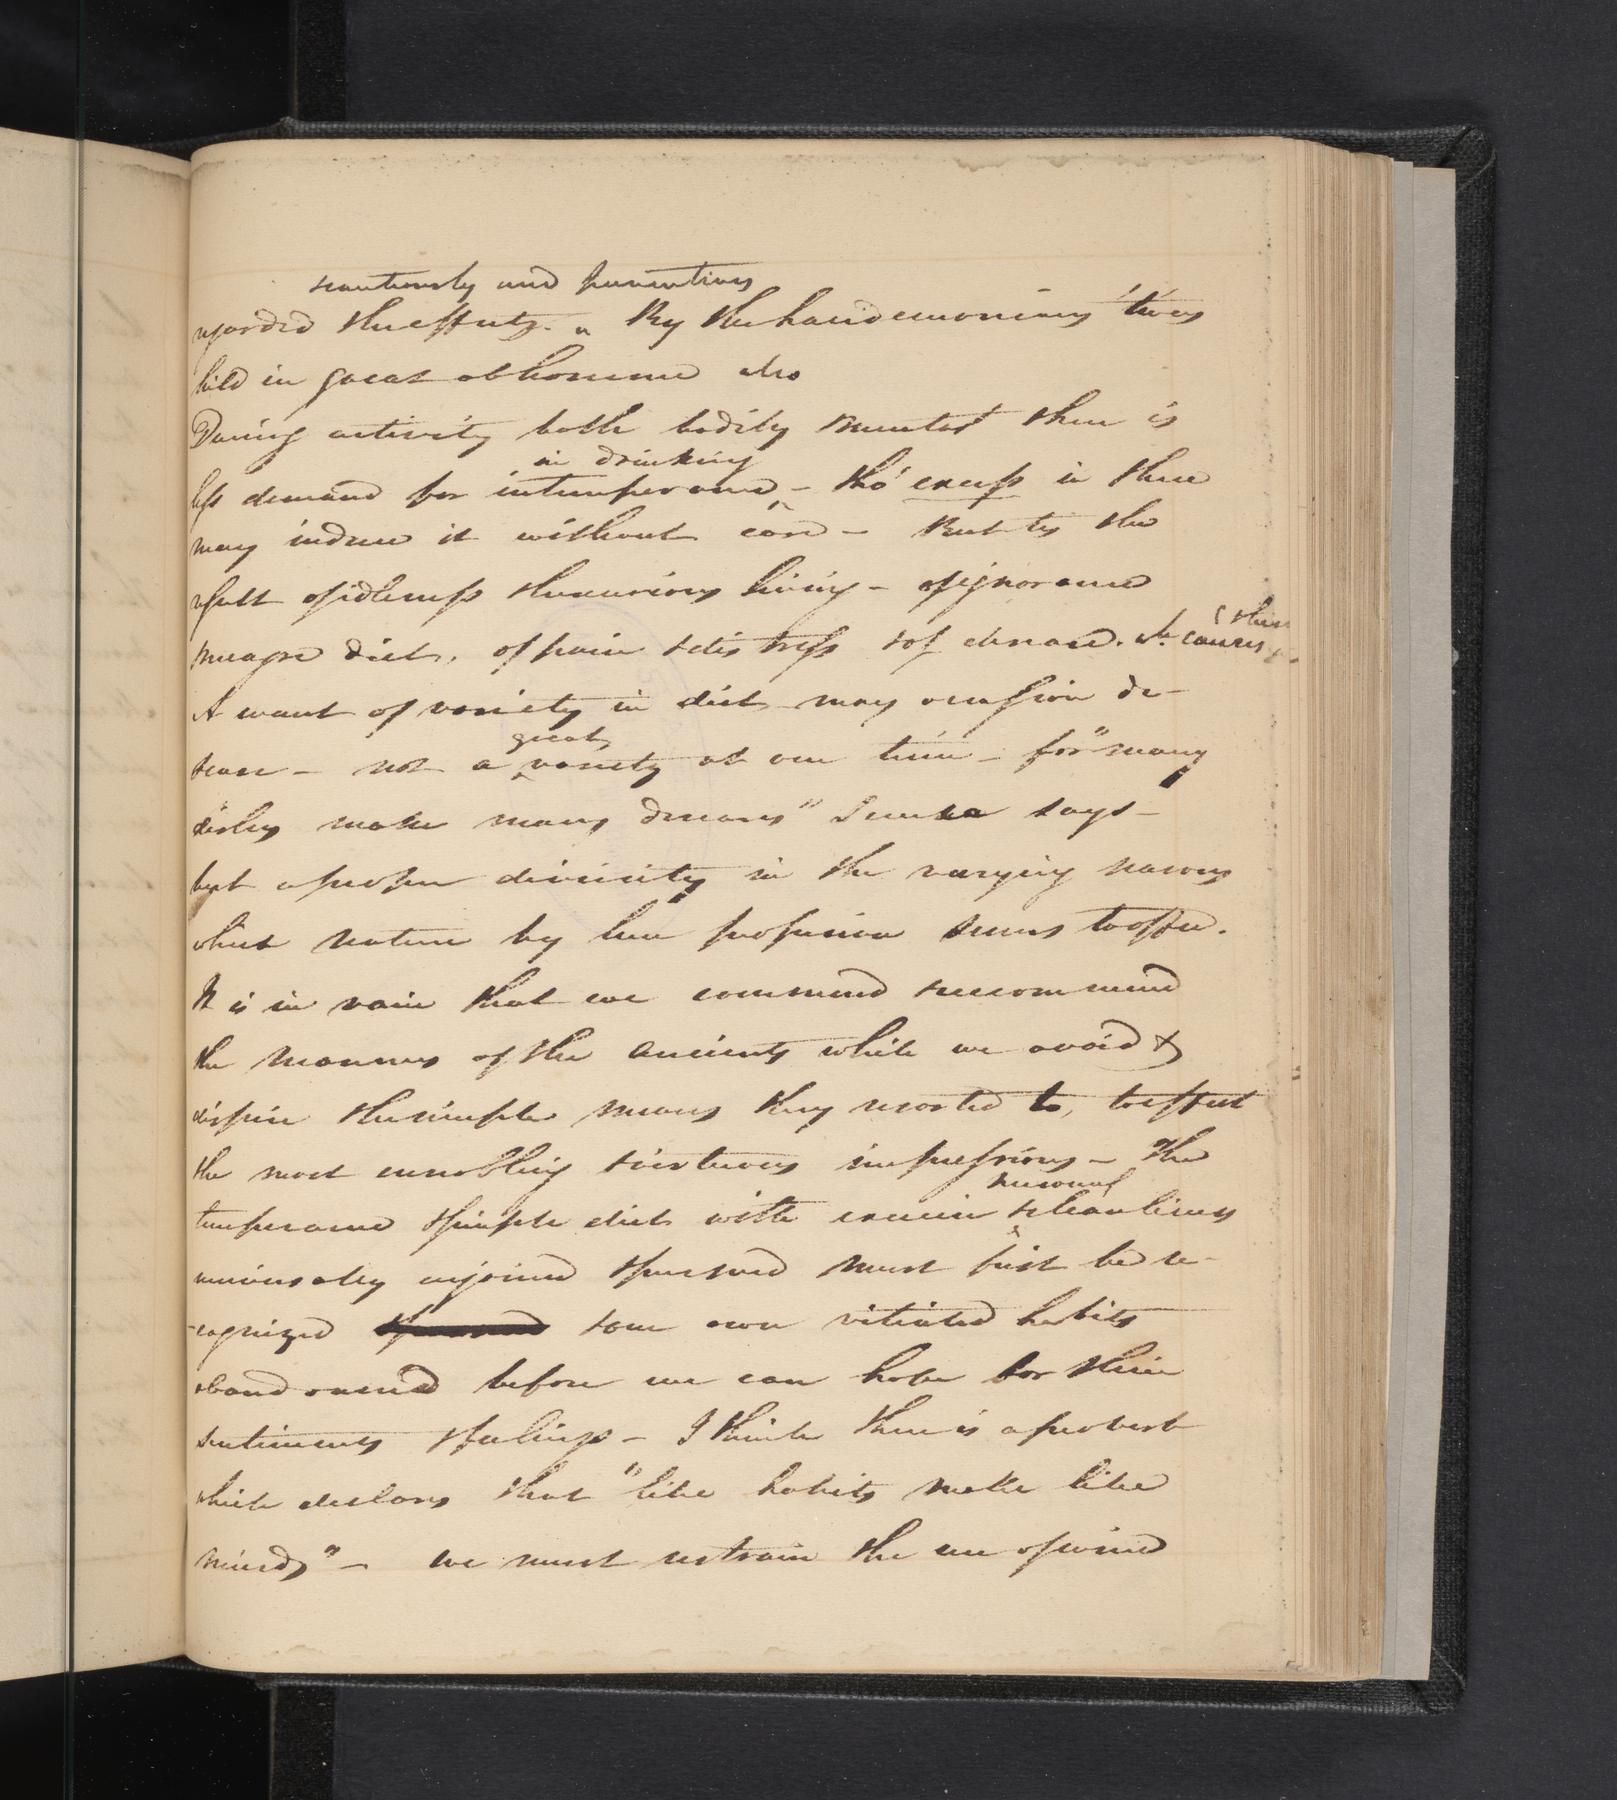 cautiously and
regarded the effects. By the Lacedemonians 'twas
held in great abhorrence also
During activity both bodily & mental there is
in drinking
less demand for intemperance - tho' excess in these
may induce it without care - But tis the
result of idleness & luxurious living - of ignorance
meagre diet, of pain & distress & of disease. causes
A want of variety in diet may occasion di-
great
sease - not a variety at one time - for "many
dishes make many diseases" Seneca says -
but a proper diversity in the varying seasons
which nature by her profusion seems to offer.
It is in vain that we commend & recommend
the manners of the ancients while we avoid &
despise the simple means they resorted to, to effect
the most ennobling & virtuous impressions - The
personal
temperance & simple diet with exercise & cleanliness
universally enjoined & pursued must first be re-
-cognized & our own vitiated habits
abandoned before we can hope for their
sentiments & feelings - I think there is a proverb
which declares that "like habits make like
minds" - we must restrain the use of wine